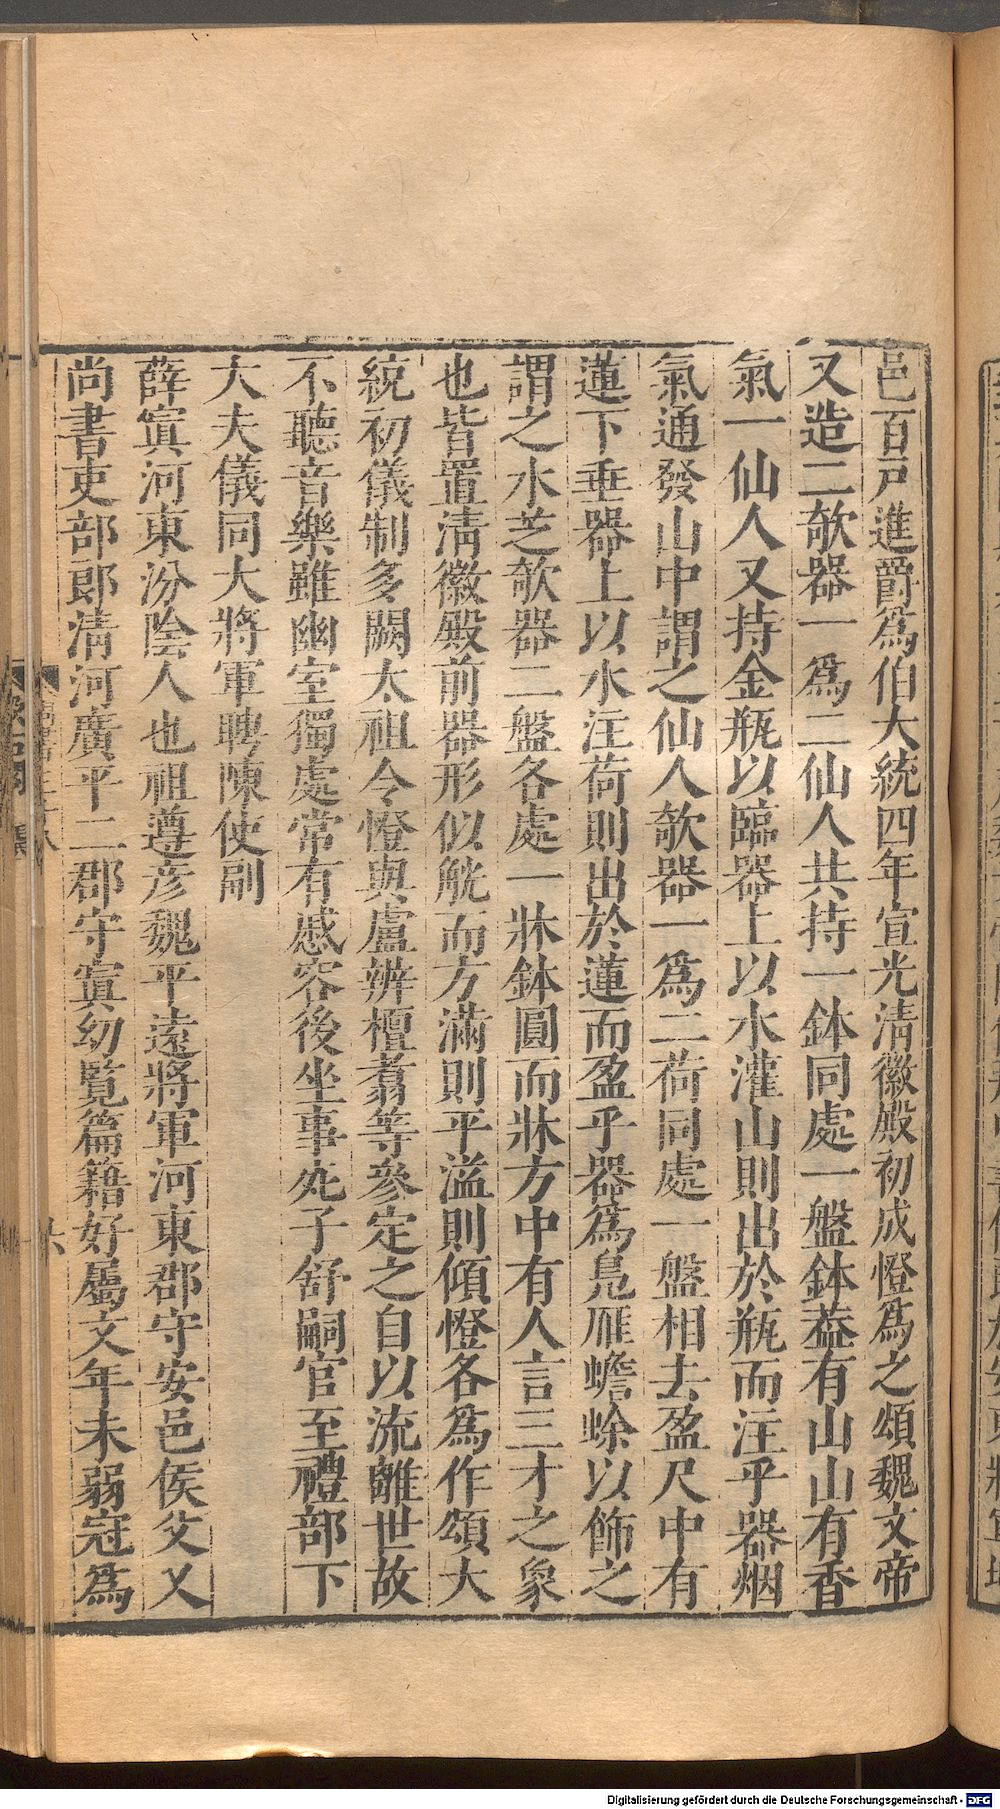 邑百戸進爵爲伯大統四年宣光清徽殿初成憕爲之頌魏文帝
又造二欹器一爲二仙人共持一鉢同處一盤鉢葢有山山有香
氣一仙人又持金瓶以臨器上以水灌山則出於瓶而注乎器烟
氣通發山中謂之仙人欹器一爲二荷同處一盤相去盈尺中有
蓮下垂器上以水注荷則出於蓮而盈乎器爲鳧雁蟾蜍以飾之
謂之水芝欹器二盤各處一牀鉢圓而牀方中有人言三才之象
也皆置清徽殿前器形似觥而方滿則平溢則傾憕各爲作頌大
統初儀制多闕太祖令憕與盧辨檀翥等參定之自以流離世故
不聽音樂雖幽室獨處常有慼容後坐事死子舒嗣官至禮部下
大夫儀同大將軍聘陳使副
薛寘河東汾陰人也祖遵彦魏平遠將軍河東郡守安邑侯父乂
尚書吏部郎清河廣平二郡守寘幼覽篇籍好屬文年未弱冠爲
Digitalisierung gefördert durch die Deutsche Forschungsgemeinschaft - DFG